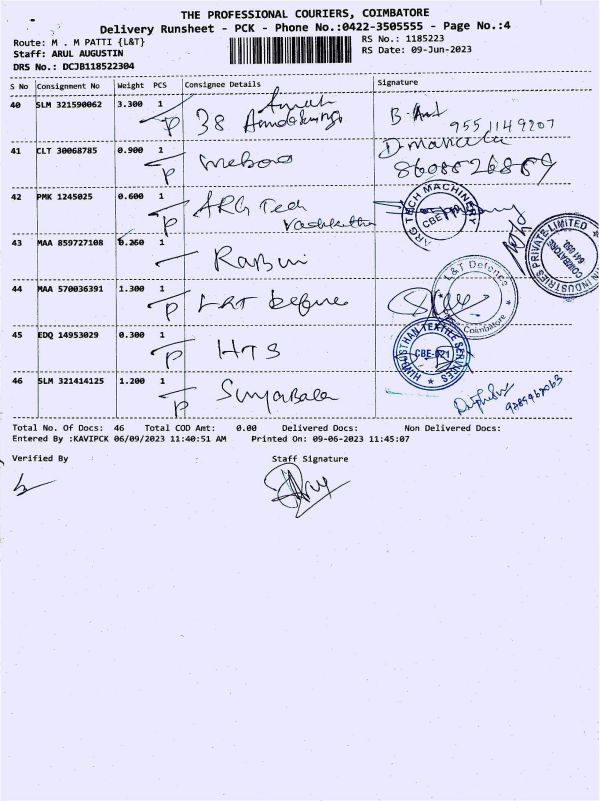 THE PROFESSIONAL COURIERS, COIMBATORE
Delivery Runsheet - PCK - Phone No.:0422-3505555 - Page No.:4
Route: M . M PATTI {L&T}
RS No.: 1185223
Staff: ARUL AUGUSTIN
RS Date: 09-Jun-2023
DRS No.: DCJB118522304
S No Consignment No Weight PCS Consignee Details Signature
40 SLM 321590062 3.300 1 38
P
9551149207
41 CLT 30068785 0.900 1
P
8608826889
42 PMK 1245025 0.600 1 ARG Tech
P
ARG TECH MACHINERY
CBE
43 MAA 859727108 0.260 1
INDUSTRIES PRIVATE LIMITED
COIMBATORE
44 MAA 570036391 1.300 1 L&T Defence
P
L&T Defence
Coimbatore
45 EDQ 14953029 0.300 1 HTS
P
HINDUSTHAN TEXTILE SERVICES
CBE-21
46 SLM 321414125 1.200 1 Suryabala
P
9789967063
Total No. Of Docs: 46 Total COD Amt: 0.00 Delivered Docs: Non Delivered Docs:
Entered By :KAVIPCK 06/09/2023 11:40:51 AM Printed On: 09-06-2023 11:45:07
Verified By Staff Signature